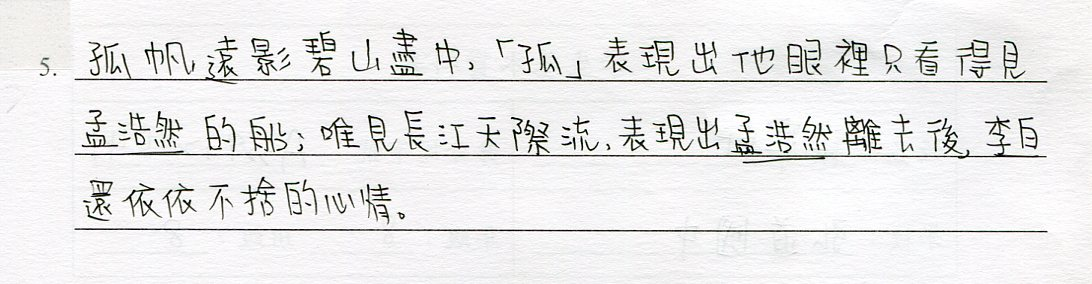 5. 孤帆遠影碧山盡中,「孤」表現出他眼裡只看得見
孟浩然的船;唯見長江天際流,表現出孟浩然離去後,李白
還依依不捨的心情。